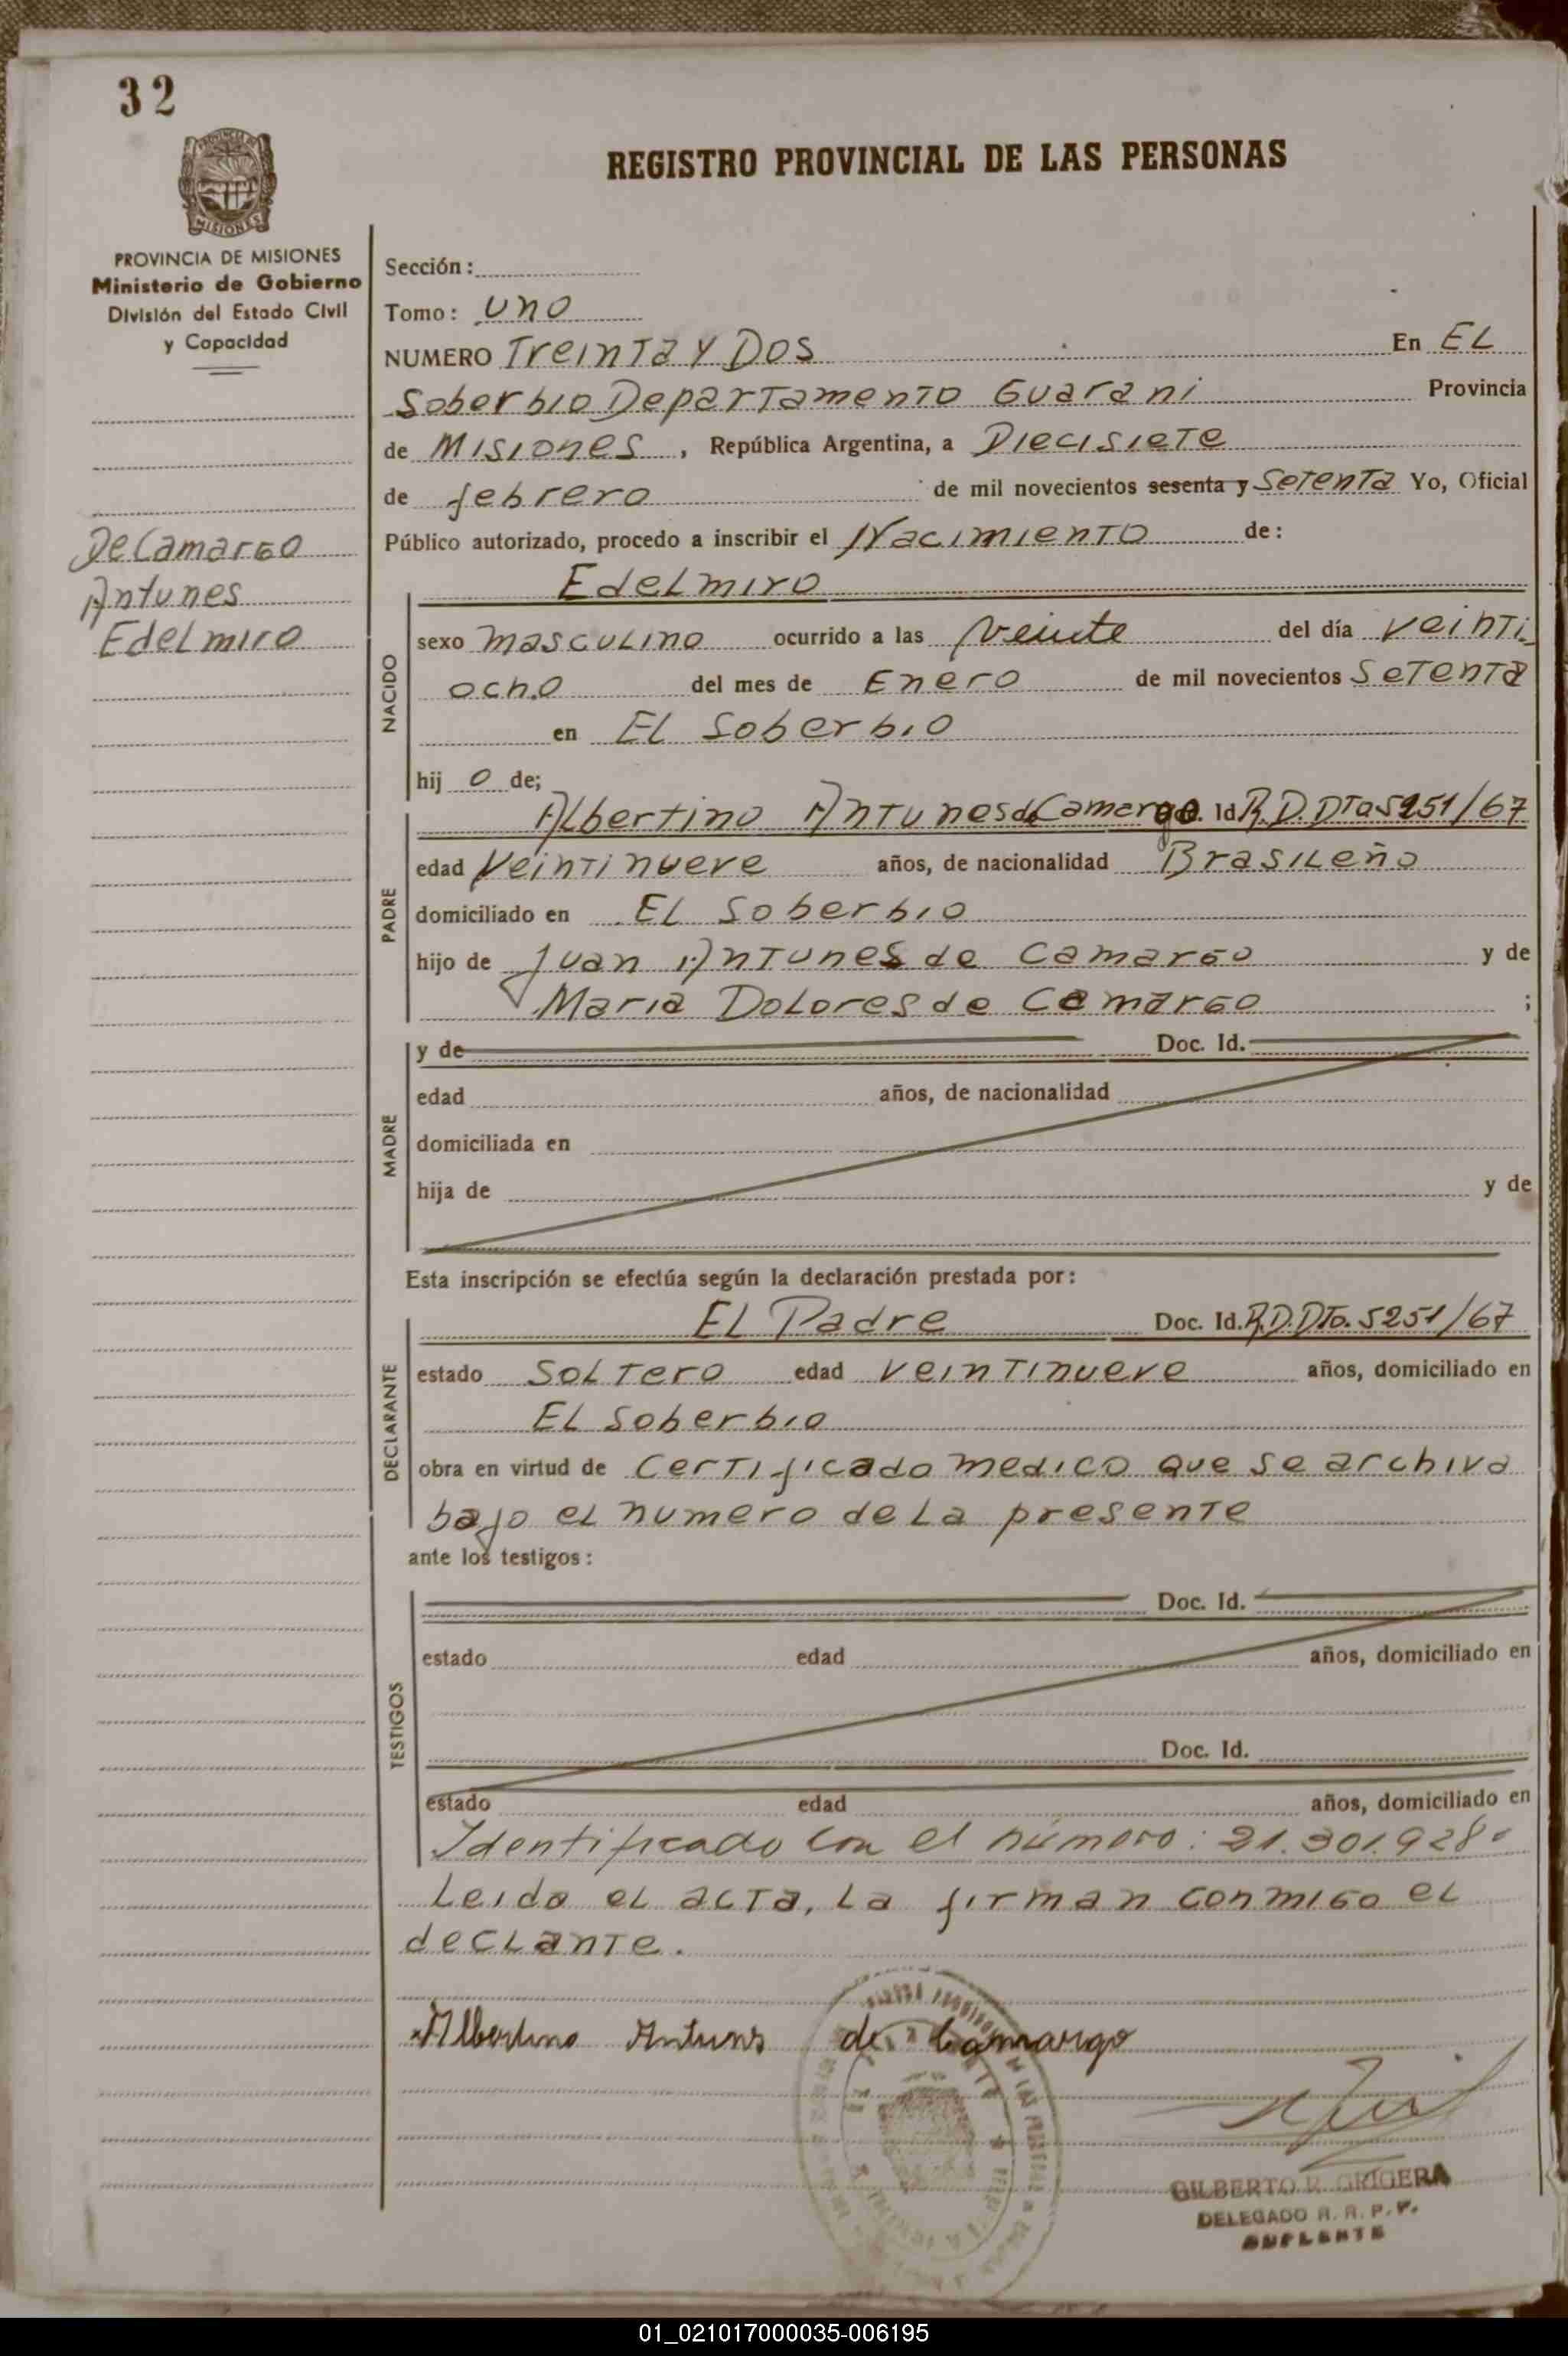 32
PROVINCIA DE
MISIONES
REGISTRO PROVINCIAL DE LAS PERSONAS
PROVINCIA DE MISIONES
Ministerio de Gobierno
División del Estado Civil
y Capacidad
De Camargo
Antunes
Edelmiro
Sección:
Tomo: uno
NUMERO Treinta y Dos En EL
Soberbio Departamento Guarani Provincia
de Misiones, República Argentina, a Diecisiete
de febrero de mil novecientos sesenta y Setenta Yo, Oficial
Público autorizado, procedo a inscribir el Nacimiento de:
Edelmiro
NACIDO
sexo masculino ocurrido a las veinte del día veinti
ocho del mes de Enero de mil novecientos Setenta
en EL Soberbio
hij o de;
PADRE
Albertino Antunes de Camargo. Id. R.D. Dto 5251/67
edad Veintinueve años, de nacionalidad Brasileño
domiciliado en EL Soberbio
hijo de Juan Antunes de Camargo y de
Maria Dolores de Camargo ;
MADRE
y de Doc. Id.
edad años, de nacionalidad
domiciliada en
hija de y de
Esta inscripción se efectúa según la declaración prestada por:
DECLARANTE
EL Padre Doc. Id. R.D. Dto. 5251/67
estado Soltero edad veintinueve años, domiciliado en
EL Soberbio
obra en virtud de Certificado medico que se archiva
bajo el numero de la presente
ante los testigos:
TESTIGOS
Doc. Id.
estado edad años, domiciliado en
Doc. Id.
estado edad años, domiciliado en
Identificado con el número: 21.301.928
Leida el acta, la firman conmigo el
declante.
Albertino Antuns de Camargo
GILBERTO R. GRIGERA
DELEGADO R. R. P. P.
SUPLENTE
01_021017000035-006195